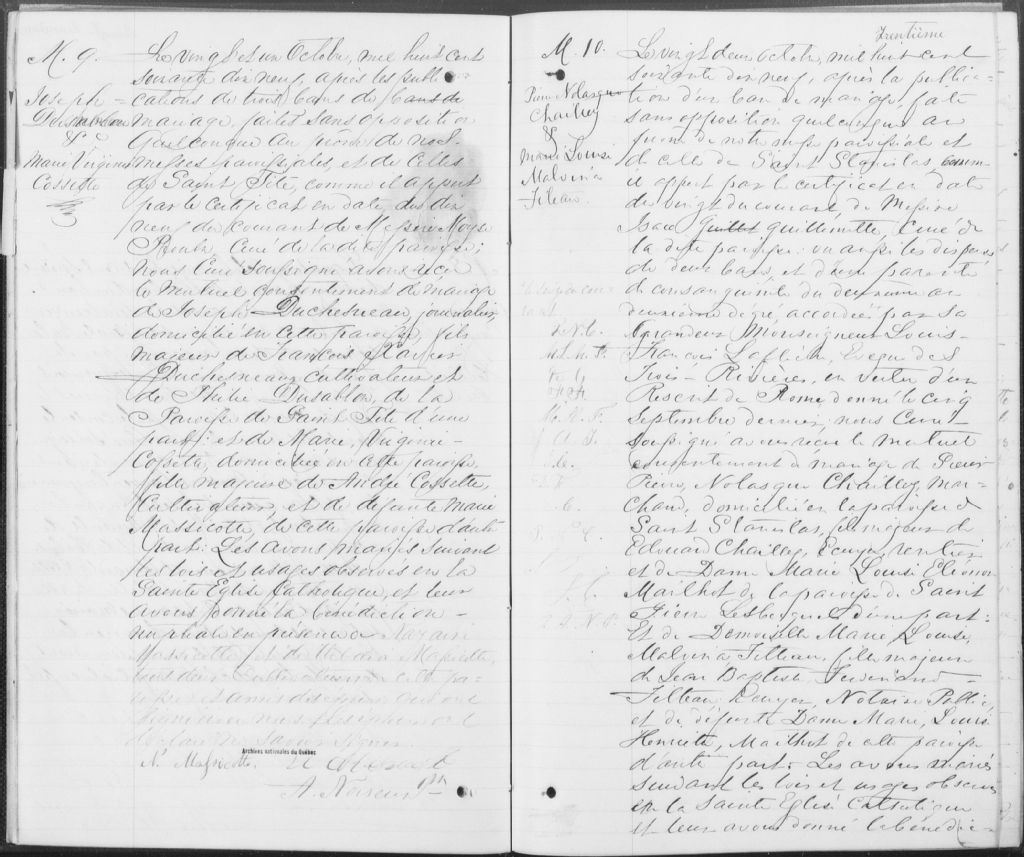 M. 9.
Joseph
Duchesneau
&
Marie Virginie
Cossette
Le vingt et un Octobre, mil huit cent
soixante dix neuf, après les publi
cations de trois bans de bans de
mariage, faites sans opposition
quelconque au prône de nos
messes paroissiales, et de celles
de Saint Tite, comme il appert
par le certificat en date du dix
neuf du courant de Messire Moyse
Proulx, Curé de la dite paroisse;
nous Curé soussigné avons reçu
le mutuel consentement de mariage
de Joseph Duchesneau, journalier
domicilié en cette paroisse, fils
majeur de François Xavier
Duchesneau cultivateur et
de Julie Dusablon, de la
Paroisse de Saint Tite d'une
part; et de Marie, Virginie
Cossette, domiciliée en cette paroisse,
fille majeure de André Cossette,
Cultivateur, et de défunte Marie
Massicotte, de cette paroisse d'autre
part: Les avons mariés suivant
les lois et usages observés en la
Sainte Eglise Catholique, et leur
avons donné la bénédiction
nuptiale en présence de
Massicotte, et de
tous deux Cultivateurs de cette pa-
roisse et amis des époux qui ont
signé avec nous, les époux ont
déclaré ne savoir signer.
N. Massicotte.
A. Noiseux Ptre
Archives nationales du Québec
Trentième
M. 10.
Pierre Nolasque
Chaillez
&
Marie Louise
Malvina
Filteau.
Le vingt deux Octobre, mil huit cent
soixante dix neuf, après la publica-
tion d'un ban de mariage faite
sans opposition quelconque au
prône de notre messe paroissiale et
de celle de Saint Stanislas, comme
il appert par le certificat en date
du vingt du courant, de Messire
Isaac Guillet guillemette, Curé de
la dite paroisse: vu aussi les dispenses
de deux bans, et d'une parenté
de consanguinité du deuxième au
deuxième degré accordées par sa
Grandeur Monseigneur Louis-
François Laflèche, Evêque des
Trois-Rivières, en vertu d'un
Rescrit de Rome donné le cinq
Septembre dernier, nous Curé
soussigné avons reçu le mutuel
consentement de mariage de Pierre
Pierre, Nolasque Chaillez, Mar-
chand, domicilié en la paroisse de
Saint Stanislas, fils majeur de
Edouard Chaillez, Ecuyer, rentier
et de Dame Marie Louise Eléonore
Mailhot de la paroisse de Saint
Pierre Les Becquets d'une part:
Et de Demoiselle Marie Louise,
Malvina Filteau, fille majeure
de Jean Baptiste Ferdinand
Filteau, Ecuyer, Notaire Public,
et de défunte Dame Marie, Louise
Henriette, Mailhot de cette paroisse
d'autre part: Les avons mariés
suivant les lois et usages observés
en la Sainte Eglise Catholique
et leur avons donné la bénédic-